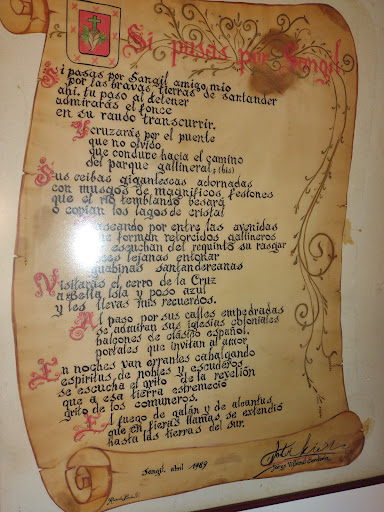 Si pasas por Sangil
Si pasas por Sangil amigo mio
por las bravas tierras de santander
ahi, tu paso al detener
admiraras el fonce
en su raudo transcurrir.
Cruzarás por el puente
que no olvido,
que conduce hacia el camino
del parque gallineral; (bis)
Sus ceibas gigantescas adornadas
con musgos de magníficos festones
que el río temblando besará
o copian los lagos de cristal
Paseando por entre las avenidas
que forman retorcidos gallineros
escuchan del requinto su rasgar
voces lejanas entonar
guabinas santandereanas
Visitarás el cerro de la Cruz
a bella isla y poso azul
y les llevas mis recuerdos.
Al paso por sus calles empedradas
se admiran sus iglesias coloniales
balcones de clásico español.
portales que invitan al amor
En noches van errantes cabalgando
espíritus de nobles y escuderos
se escucha el grito de la revelión
que a esa tierra estremeció
grito de los comuneros.
El fuego de galán y de alcantuz
que en fieras llamas se extendió
hasta las tierras del sur.
Sangil, abril 1969
Jorge Villamil Cordovez